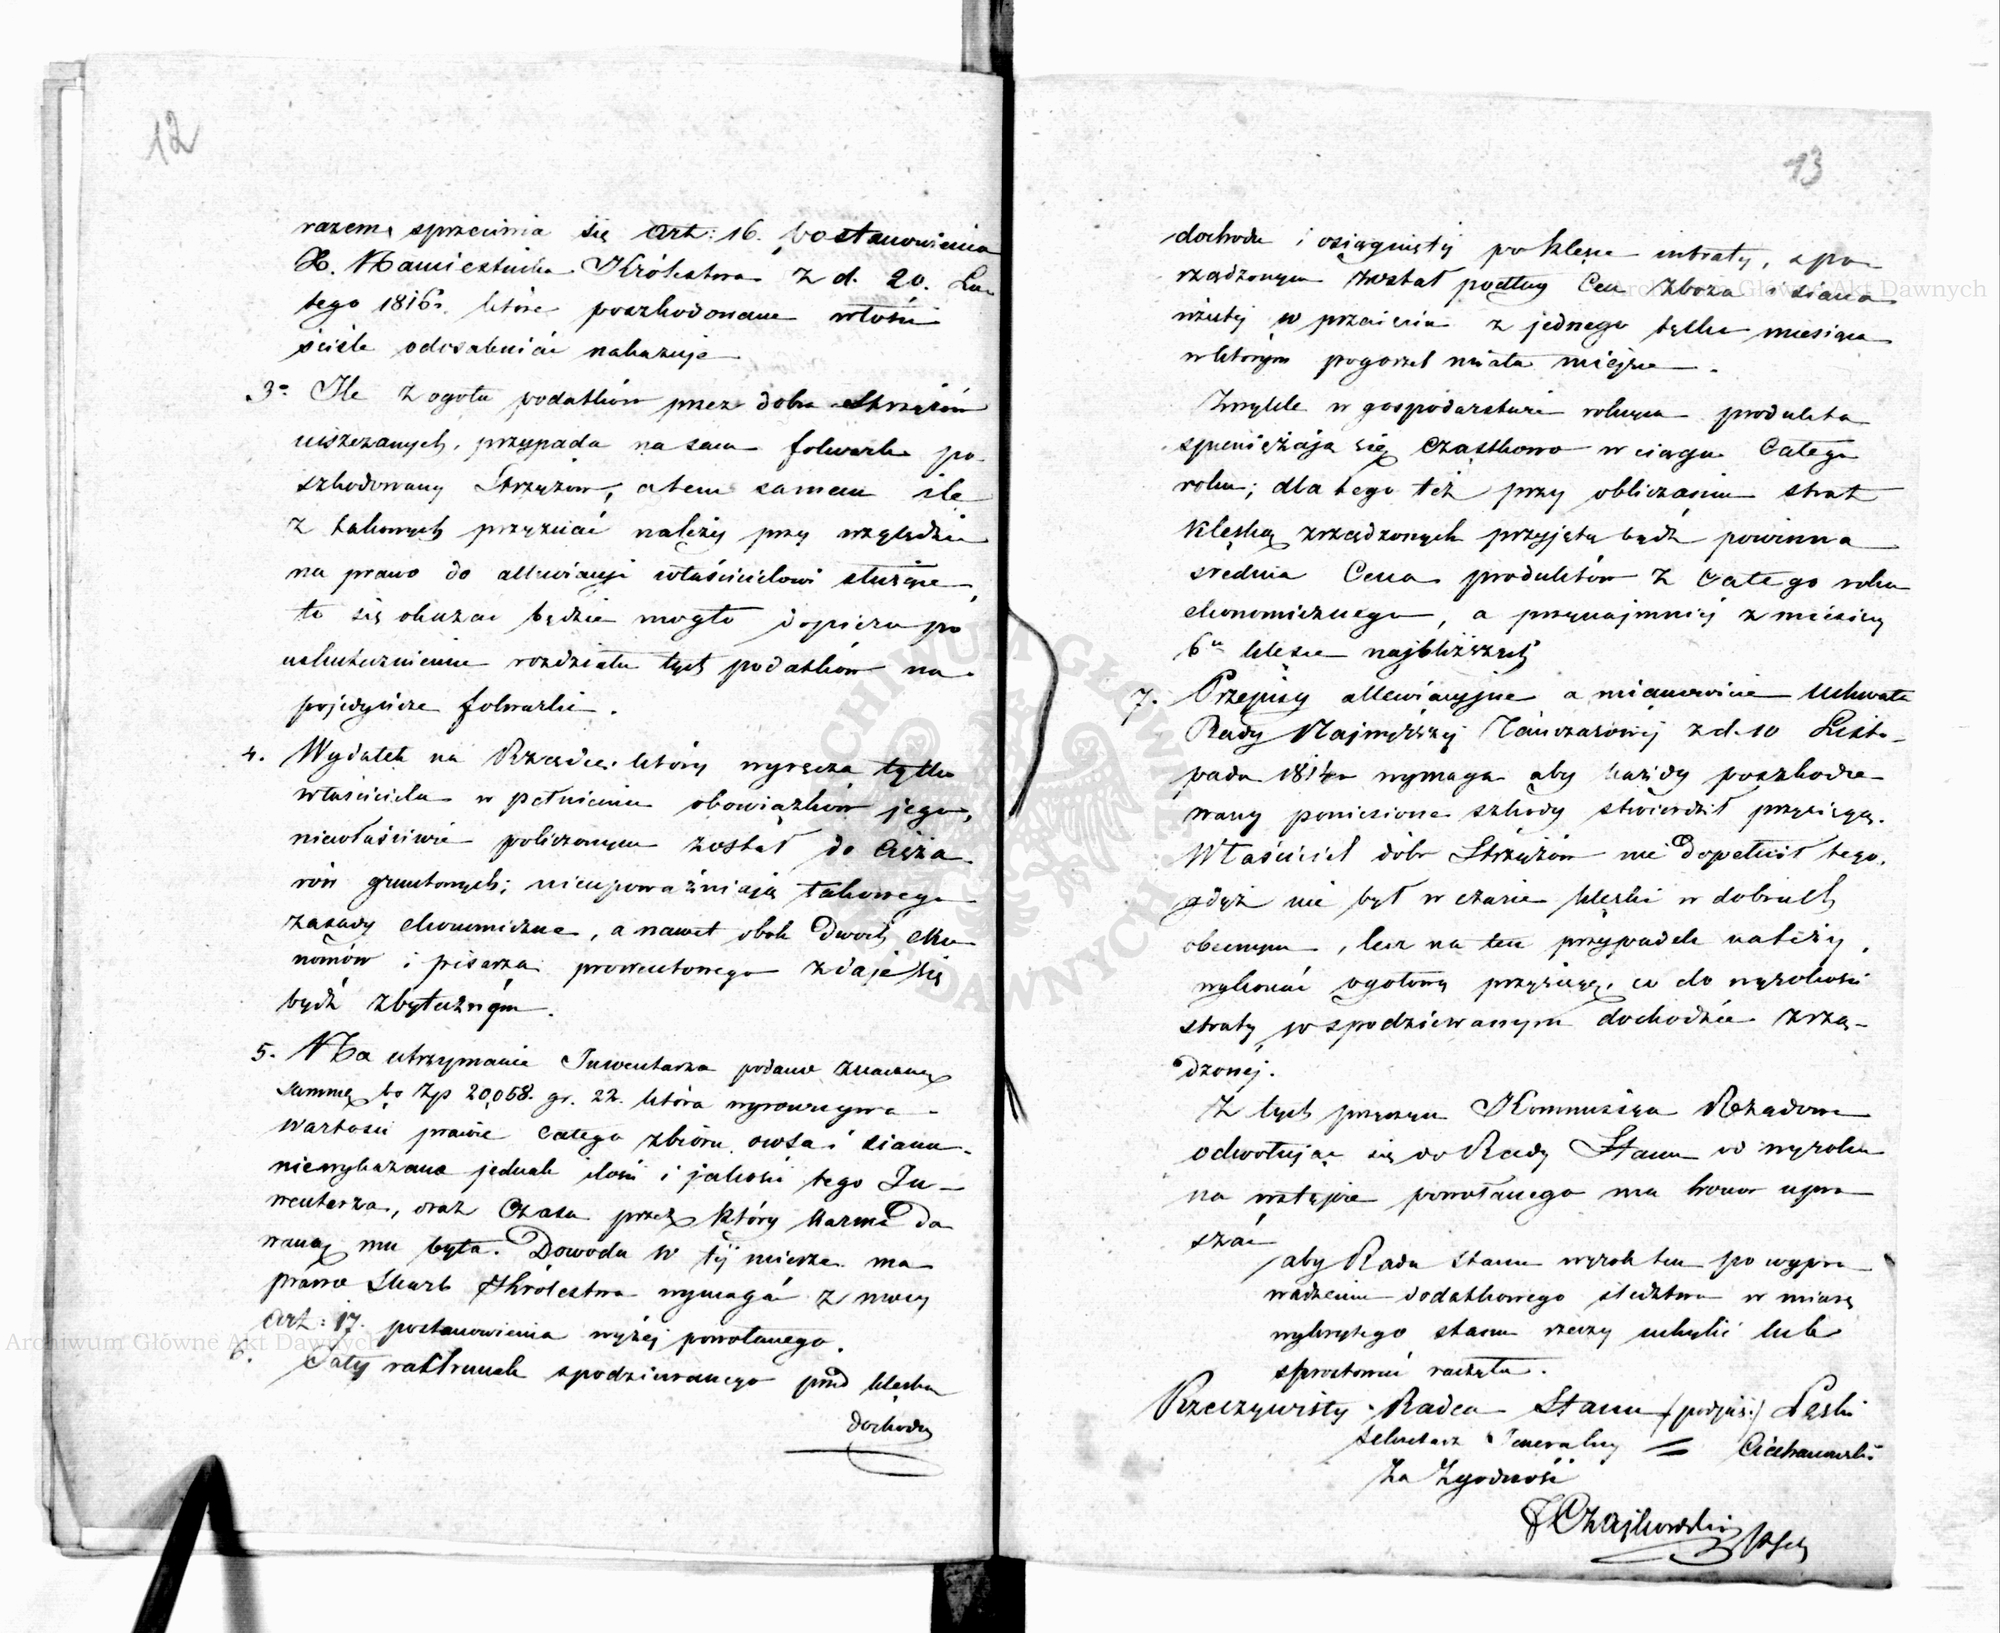 12
razem, sprzeciwia się Art: 16. postanowienia
X. Namiestnika Królestwa z d. 20. Lu-
tego 1816r. które poszkodowane włości
ściśle odosabniać nakazuje
3° Ile z ogółu podatków przez dobra Strzyżów
uiszczanych, przypada na sam folwark po-
szkodowany Strzyżów, a tem samem ile
z takowych przyznać należy przy względzie
na prawo do allewiacyi właścicielowi służące,
to się okazać będzie mogło dopiero po
uskutecznieniu rozdziału tych podatków na
pojedyńcze folwarki.
4. Wydatek na Rządcę który wyręcza tylko
właściciela w pełnieniu obowiązków jego,
niewłaściwie policzonym został do cięża-
rów gruntowych; nieupoważniają takowego
zasady ekonomiczne, a nawet obok dwóch eko-
nomów i pisarza prowentowego zdaje się
bydź zbytecznym.
5. Na utrzymanie Inwentarza podano znaczną
summę bo Zp 20,058. gr. 22. która wyrównywa
wartości prawie całego zbioru owsa i siana
niewykazano jednak ilości i jakości tego In-
wentarza, oraz czasu przez który karma da-
waną mu była. Dowodu w tej mierze ma
prawo Skarb Królestwa wymagać z mocy
Art: 17. postanowienia wyżej powołanego.
6. Cały rachunek spodziewanego przed klęską
dochodu
13
dochodu i osiągniętej po klęsce intraty, spo-
rządzonym został podług cen zboża i siana
wziętej w przecięciu z jednego tylko miesiąca
w którym pogorzel miała miejsce.
Zwykle w gospodarstwie rolnym produkta
spieniężają się cząstkowo w ciągu całego
roku; dla tego też przy obliczaniu strat
klęską zrządzonych przyjętą bydź powinna
średnia cena produktów z całego roku
ekonomicznego, a przynajmniej z miesięcy
6u klęsce najbliższych
7. Przepisy allewiacyjne a mianowicie uchwała
Rady Najwyższej Tymczasowej z d. 10 Listo-
pada 1814r wymaga aby każdy poszkodo-
wany poniesione szkody stwierdził przysięgą.
Właściciel dóbr Strzyżów nie dopełnił tego,
gdyż nie był w czasie klęski w dobrach
obecnym, lecz na ten przypadek należy,
wykonać ogólową przysięgę, co do wysokości
straty w spodziewanym dochodzie zrzą-
dzonej.
Z tych przyczyn Kommissya Rządowa
odwołując się do Rady Stanu od wyroku
na wstępie powołanego ma honor upra-
szać
aby Rada Stanu wyrok ten po wypro-
wadzeniu dodatkowego śledztwa w miarę
wykrytego stanu rzeczy uchylić lub
sprostować raczyła.
Rzeczywisty Radca Stanu (podpis:) Łęski
Sekretarz Generalny = Ciechanowski
Za Zgodność
Czajkowski